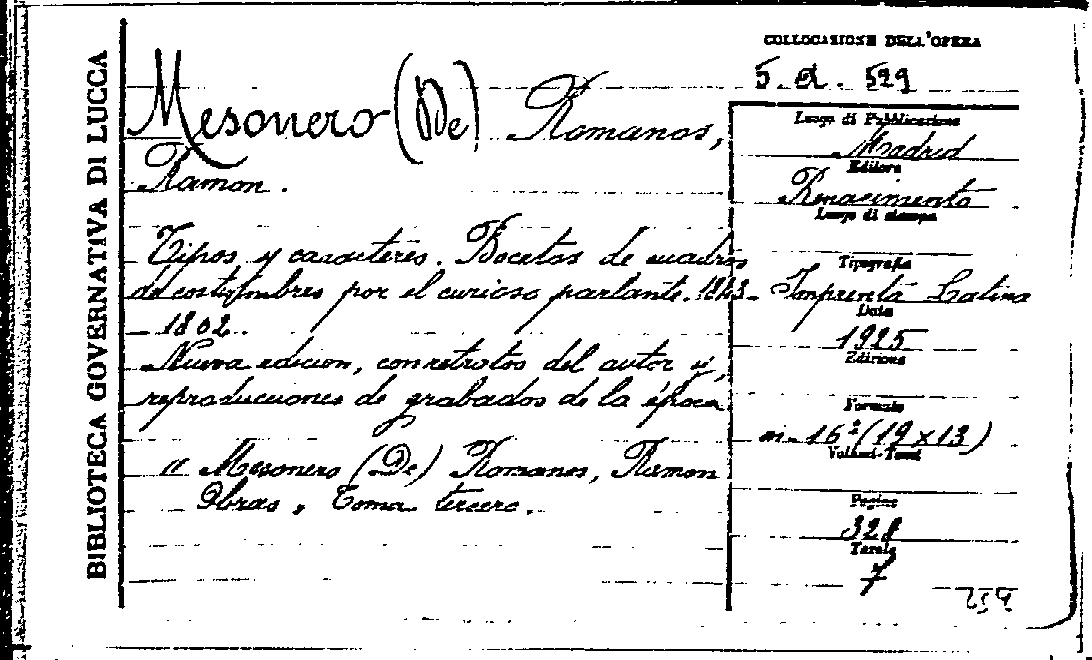 BIBLIOTECA GOVERNATIVA DI LUCCA
Mesonero (De) Romanos,
Ramon.
Tipos y caracteres. Bocetos de cuadros
de costumbres por el curioso parlante. 1843-
- 1802.
Nueva edicion, con retratos del autor y,
reproducciones de grabados de la época
" Mesonero (De) Romanos, Ramon
Obras, Tomo tercero.
COLLOCAZIONE DELL'OPERA
5. a. 529
Luogo di Pubblicazione
Madrid
Editore
Renacimento
Luogo di stampa
Tipografia
Imprenta Latina
Data
1925
Edizione
Formato
in-16º (19x13)
Volumi-Tomi
Pagine
328
Tavole
7